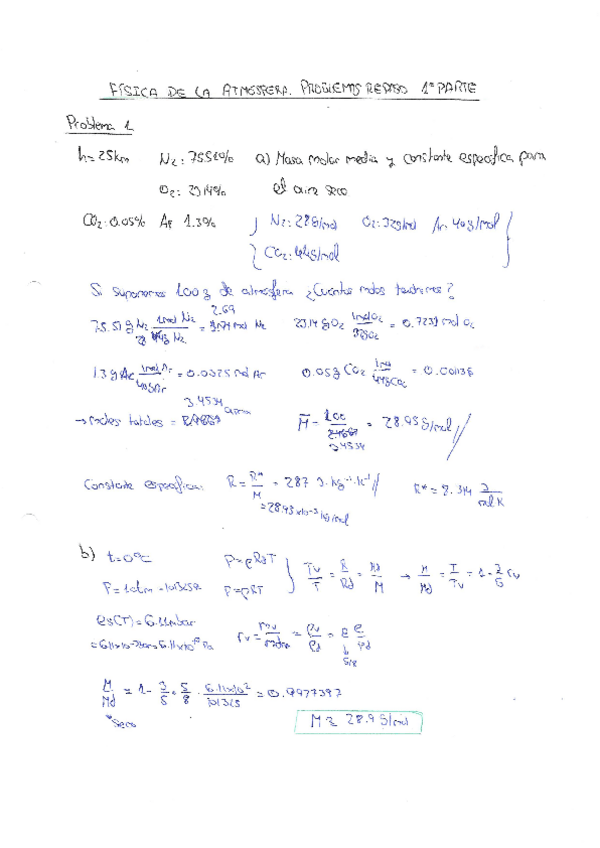 FÍSICA DE LA ATMOSFERA. PROBLEMAS REPASO 1ª PARTE
Problema 1
h=25km N2: 75.51% a) Masa molar media y constante específica para
O2: 23.14% el aire seco
CO2: 0.05% Ar 1.3% N2: 28g/mol O2: 32g/mol Ar: 40g/mol
CO2: 44g/mol
Si suponemos 100g de atmósfera ¿Cuántos moles tendremos?
75.51g N2 · 1mol N2 / 28 g N2 = 2.69 mol N2 23.14 g O2 · 1mol O2 / 32g O2 = 0.7231 mol O2
1.3g Ar · 1mol Ar / 40g Ar = 0.0325 mol Ar 0.05g CO2 · 1mol / 44g CO2 = 0.001136
→ moles totales = 3.4534 M̄ = 100 / 3.4534 = 28.95 g/mol
Constante específica: R = R* / M = 287 J·kg⁻¹·K⁻¹ R* = 8.314 J / mol K
= 28.95x10⁻³ kg/mol
b) t=0ºC P=ρRdT Tv/T = R/Rd = Md/M → M/Md = T/Tv = 1 - 3/5 rv
P=1atm = 101325Pa P=ρRT
es(T) = 6.11mbar rv = mv/md = ρv/ρd = ε e/Pd
5/8
M/Md = 1 - 3/5 · 5/8 · 6.11x10² / 101325 = 0.9977397
seco
M ≈ 28.9 g/mol